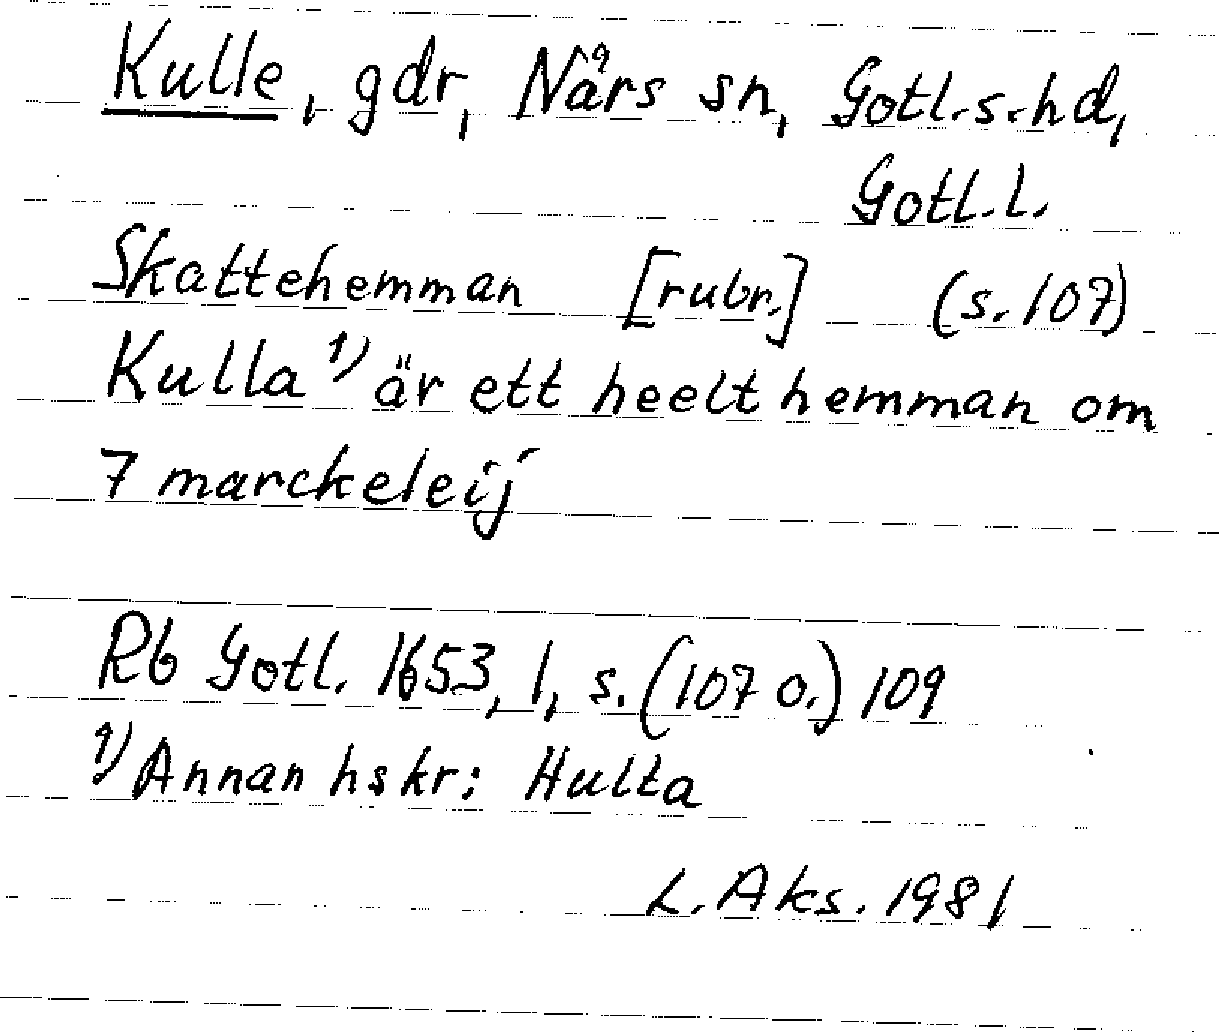 Kulle, gdr, Närs sn, Gotl.s.hd,
Gotl.l.
Skattehemman [rubr.] (s.107)
Kulla 1) är ett heelt hemman om
7 marckeleij
Rb Gotl. 1653, 1, s. (107 o.) 109
1) Annan hskr: Hulta
L. Aks. 1981